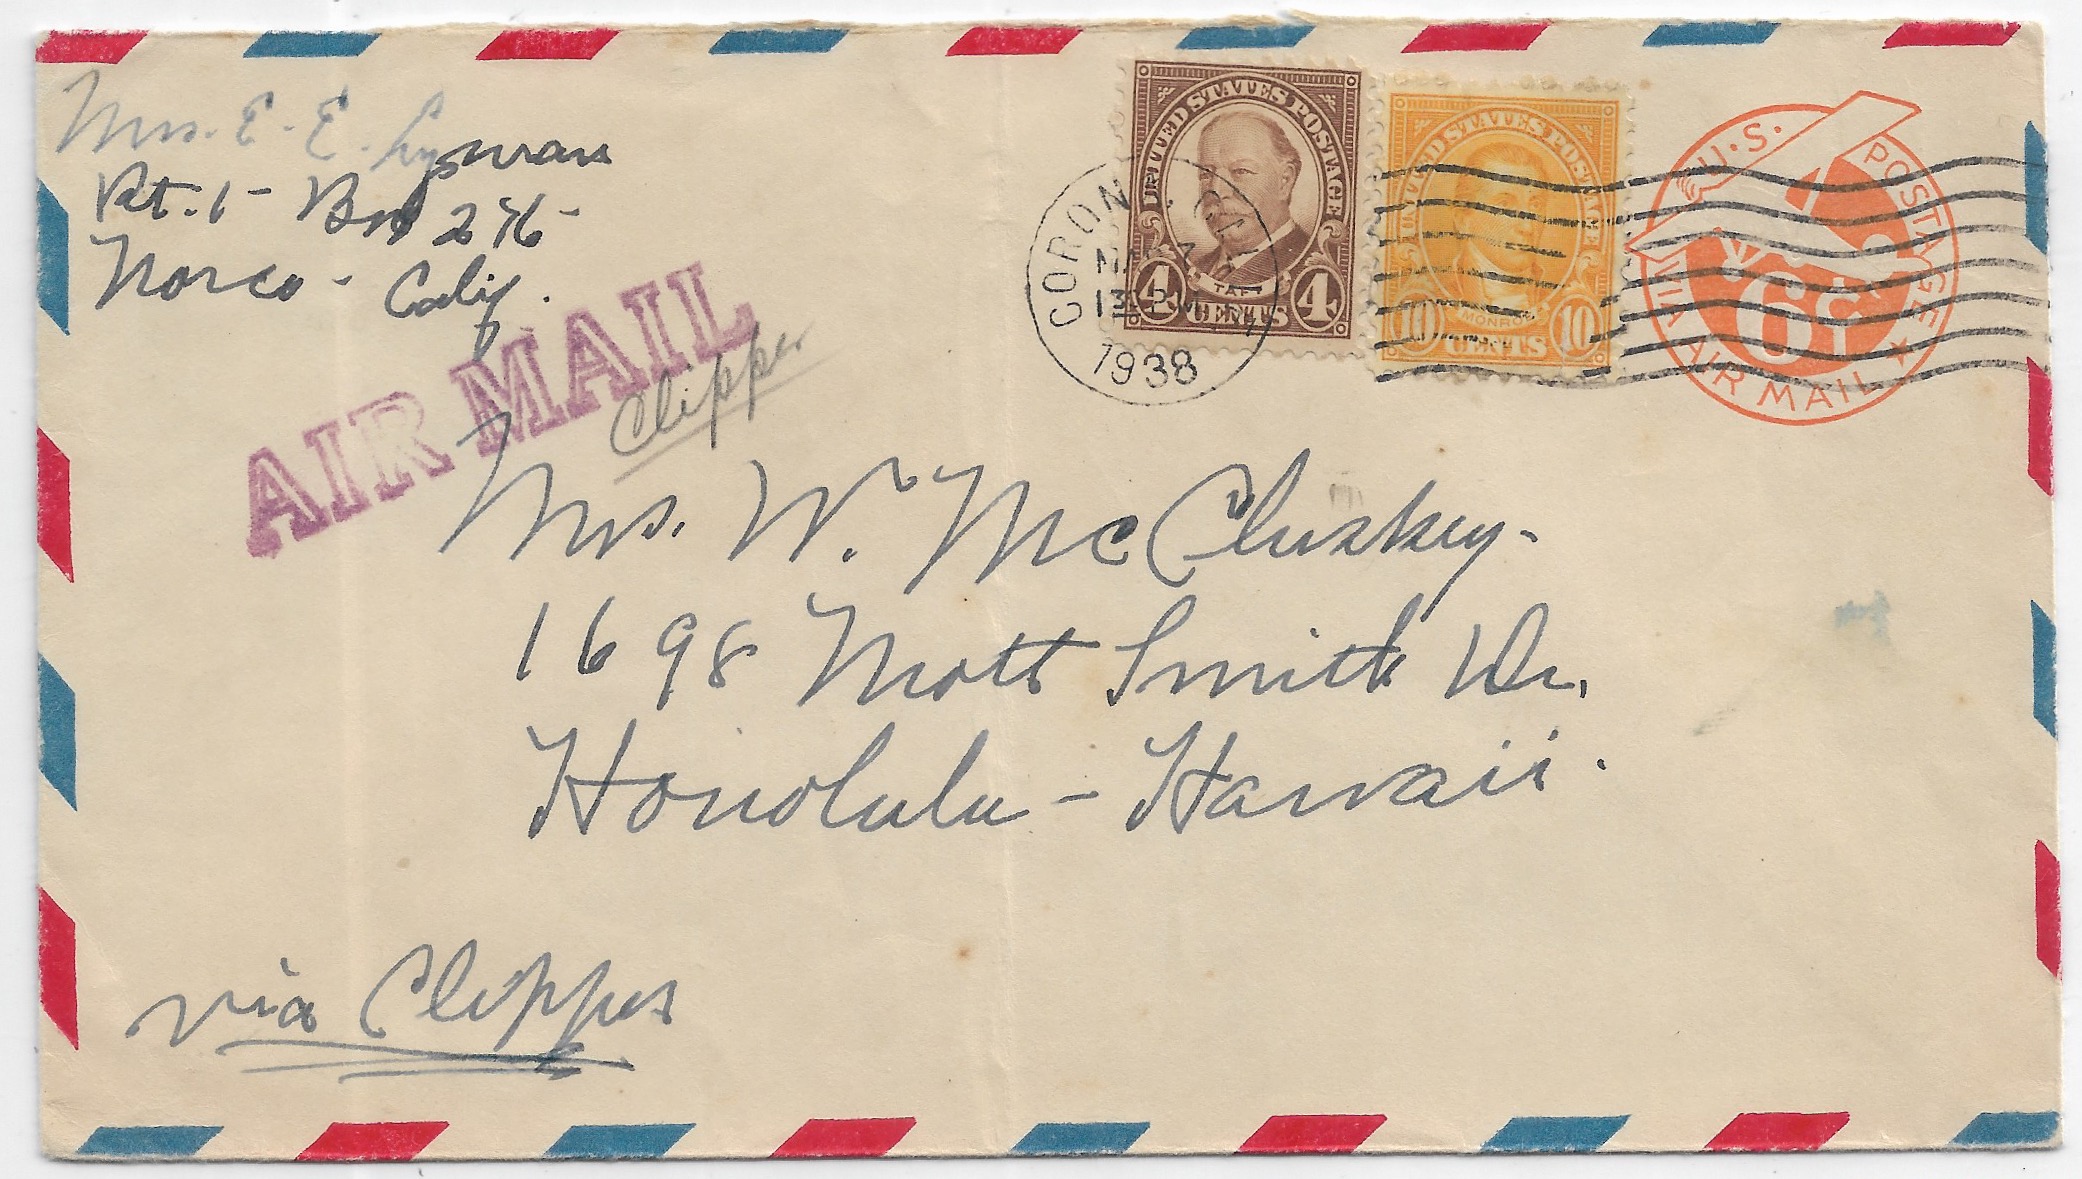 Mrs. E. E.
Rt. 1 - Box 276 -
Norco - Calif.
AIR MAIL
Clipper
UNITED STATES POSTAGE
TAFT
4 CENTS 4
UNITED STATES POSTAGE
MONROE
10 CENTS 10
U.S. POSTAGE
6¢
VIA AIR MAIL
CORONA, CAL
1 PM
1938
Mrs. W. McCluskey -
1698 Mott Smith Dr.
Honolulu - Hawaii.
via Clipper